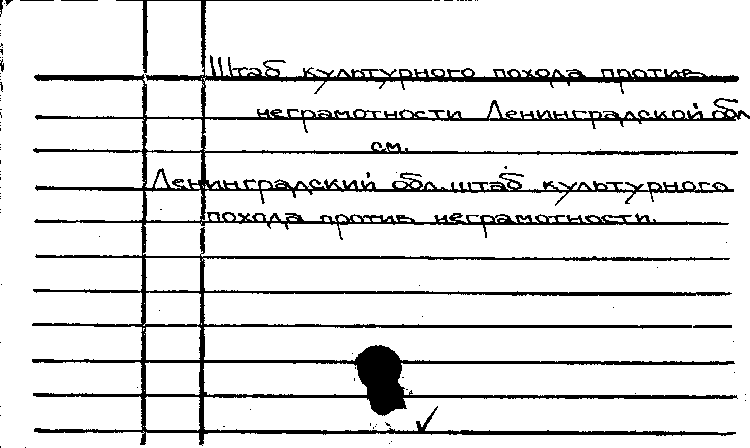 Штаб культурного похода против
неграмотности Ленинградской обл
см.
Ленинградский обл. штаб культурного
похода против неграмотности.